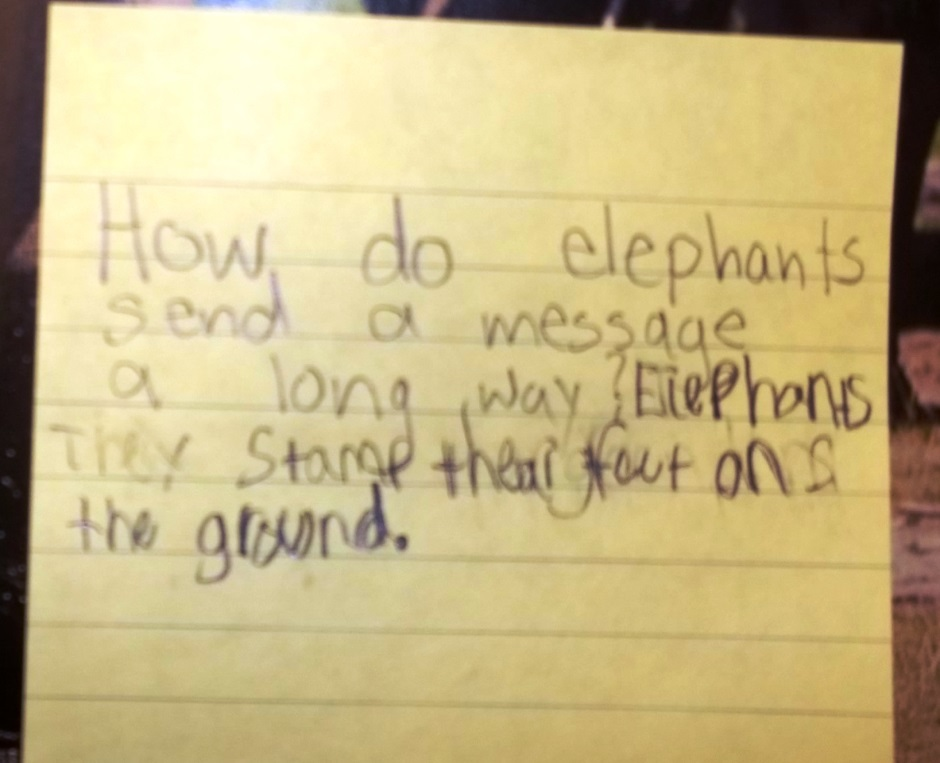 How do elephants
send a message
a long way ? Elephants
They Stamp thear feut on
the ground.